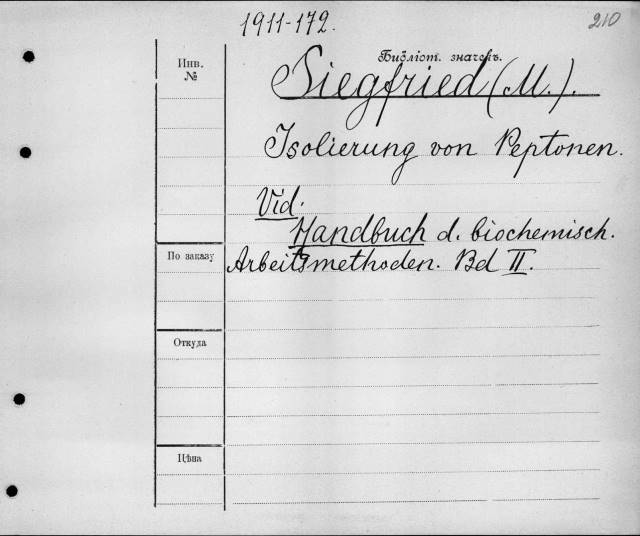 1911-172.
210
Инв.
№
Библіот. значекъ.
Siegfried (M.).
Isolierung von Peptonen.
Vid.
Handbuch d. biochemisch.
По заказу
Arbeitsmethoden. Bd II.
Откуда
Цѣна